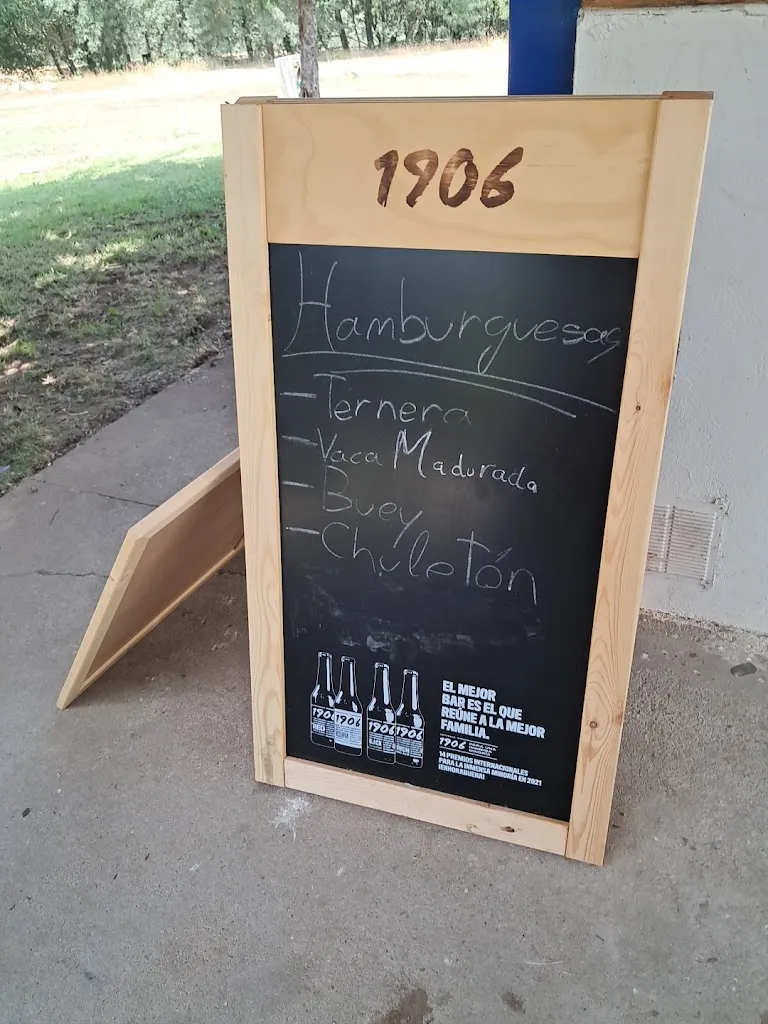 1906
Hamburguesas
- Ternera
- Vaca Madurada
- Buey
- Chuletón
1906 1906 1906 1906
EL MEJOR
BAR ES EL QUE
REÚNE A LA MEJOR
FAMILIA.
1906
14 PREMIOS INTERNACIONALES
PARA LA INMENSA MINORÍA EN 2021
¡ENHORABUENA!